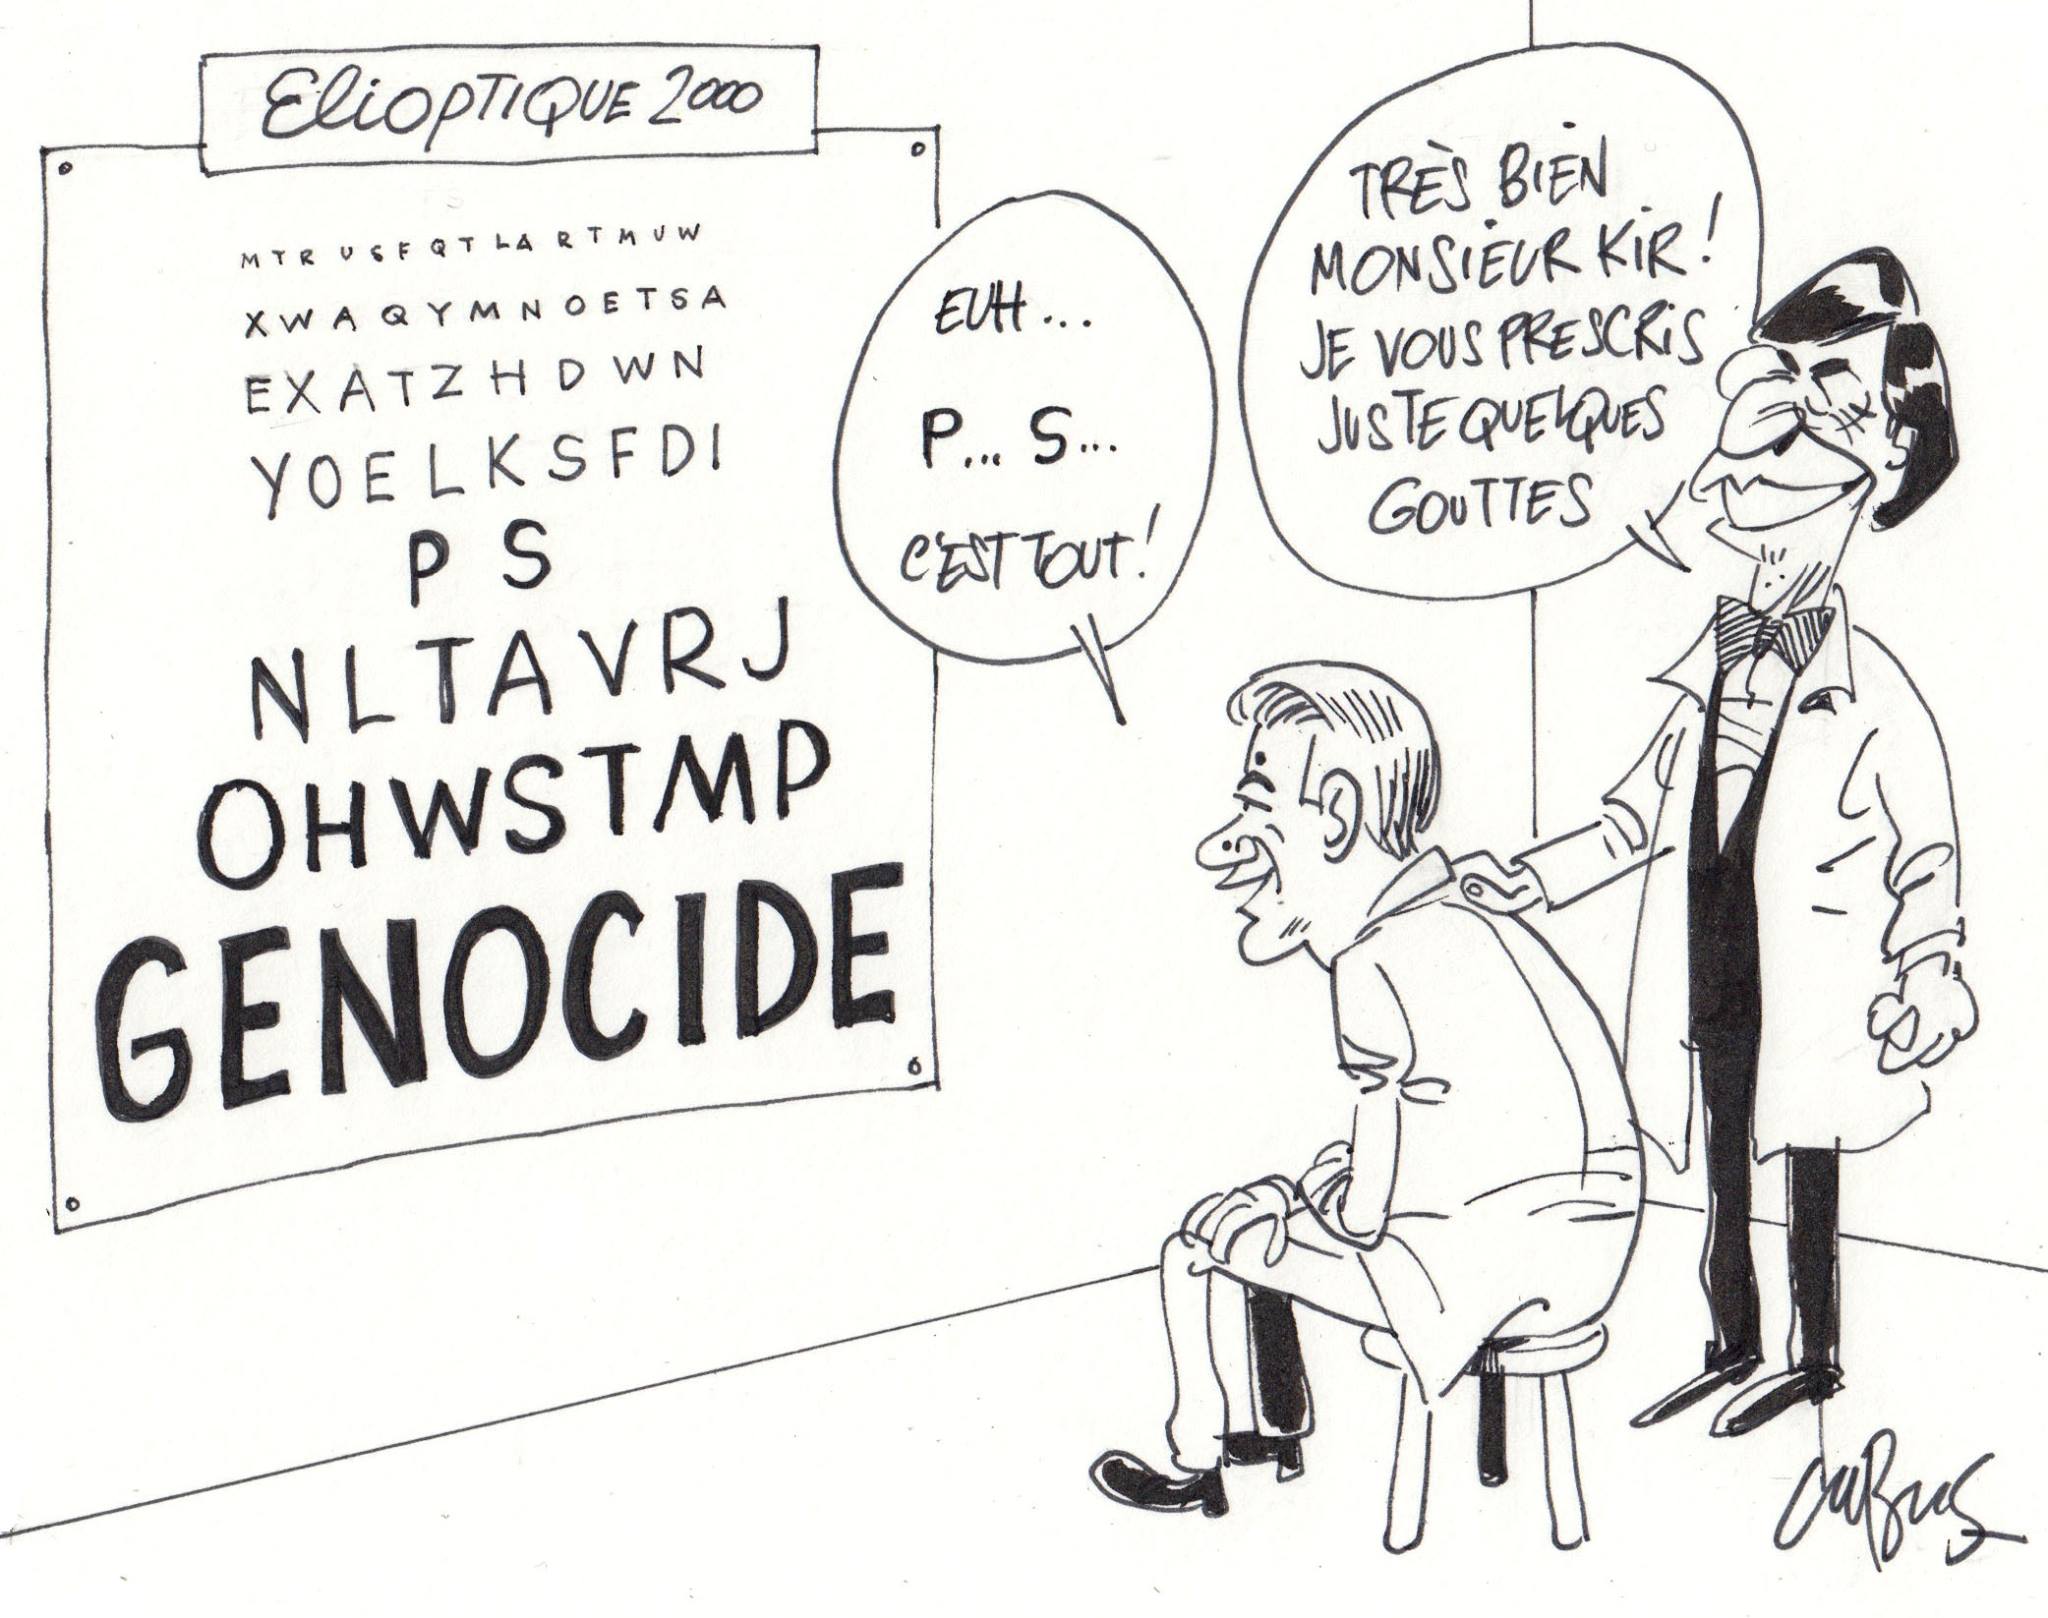 ELIOPTIQUE 2000
MTRUSFQTLARTMUW
XWAQYMNOETSA
EXATZHDWN
YOELKSFDI
P S
NLTAVRJ
OHWSTMP
GENOCIDE
EUH...
P... S...
C'EST TOUT!
TRÈS BIEN
MONSIEUR KIR!
JE VOUS PRESCRIS
JUSTE QUELQUES
GOUTTES
CUBUS